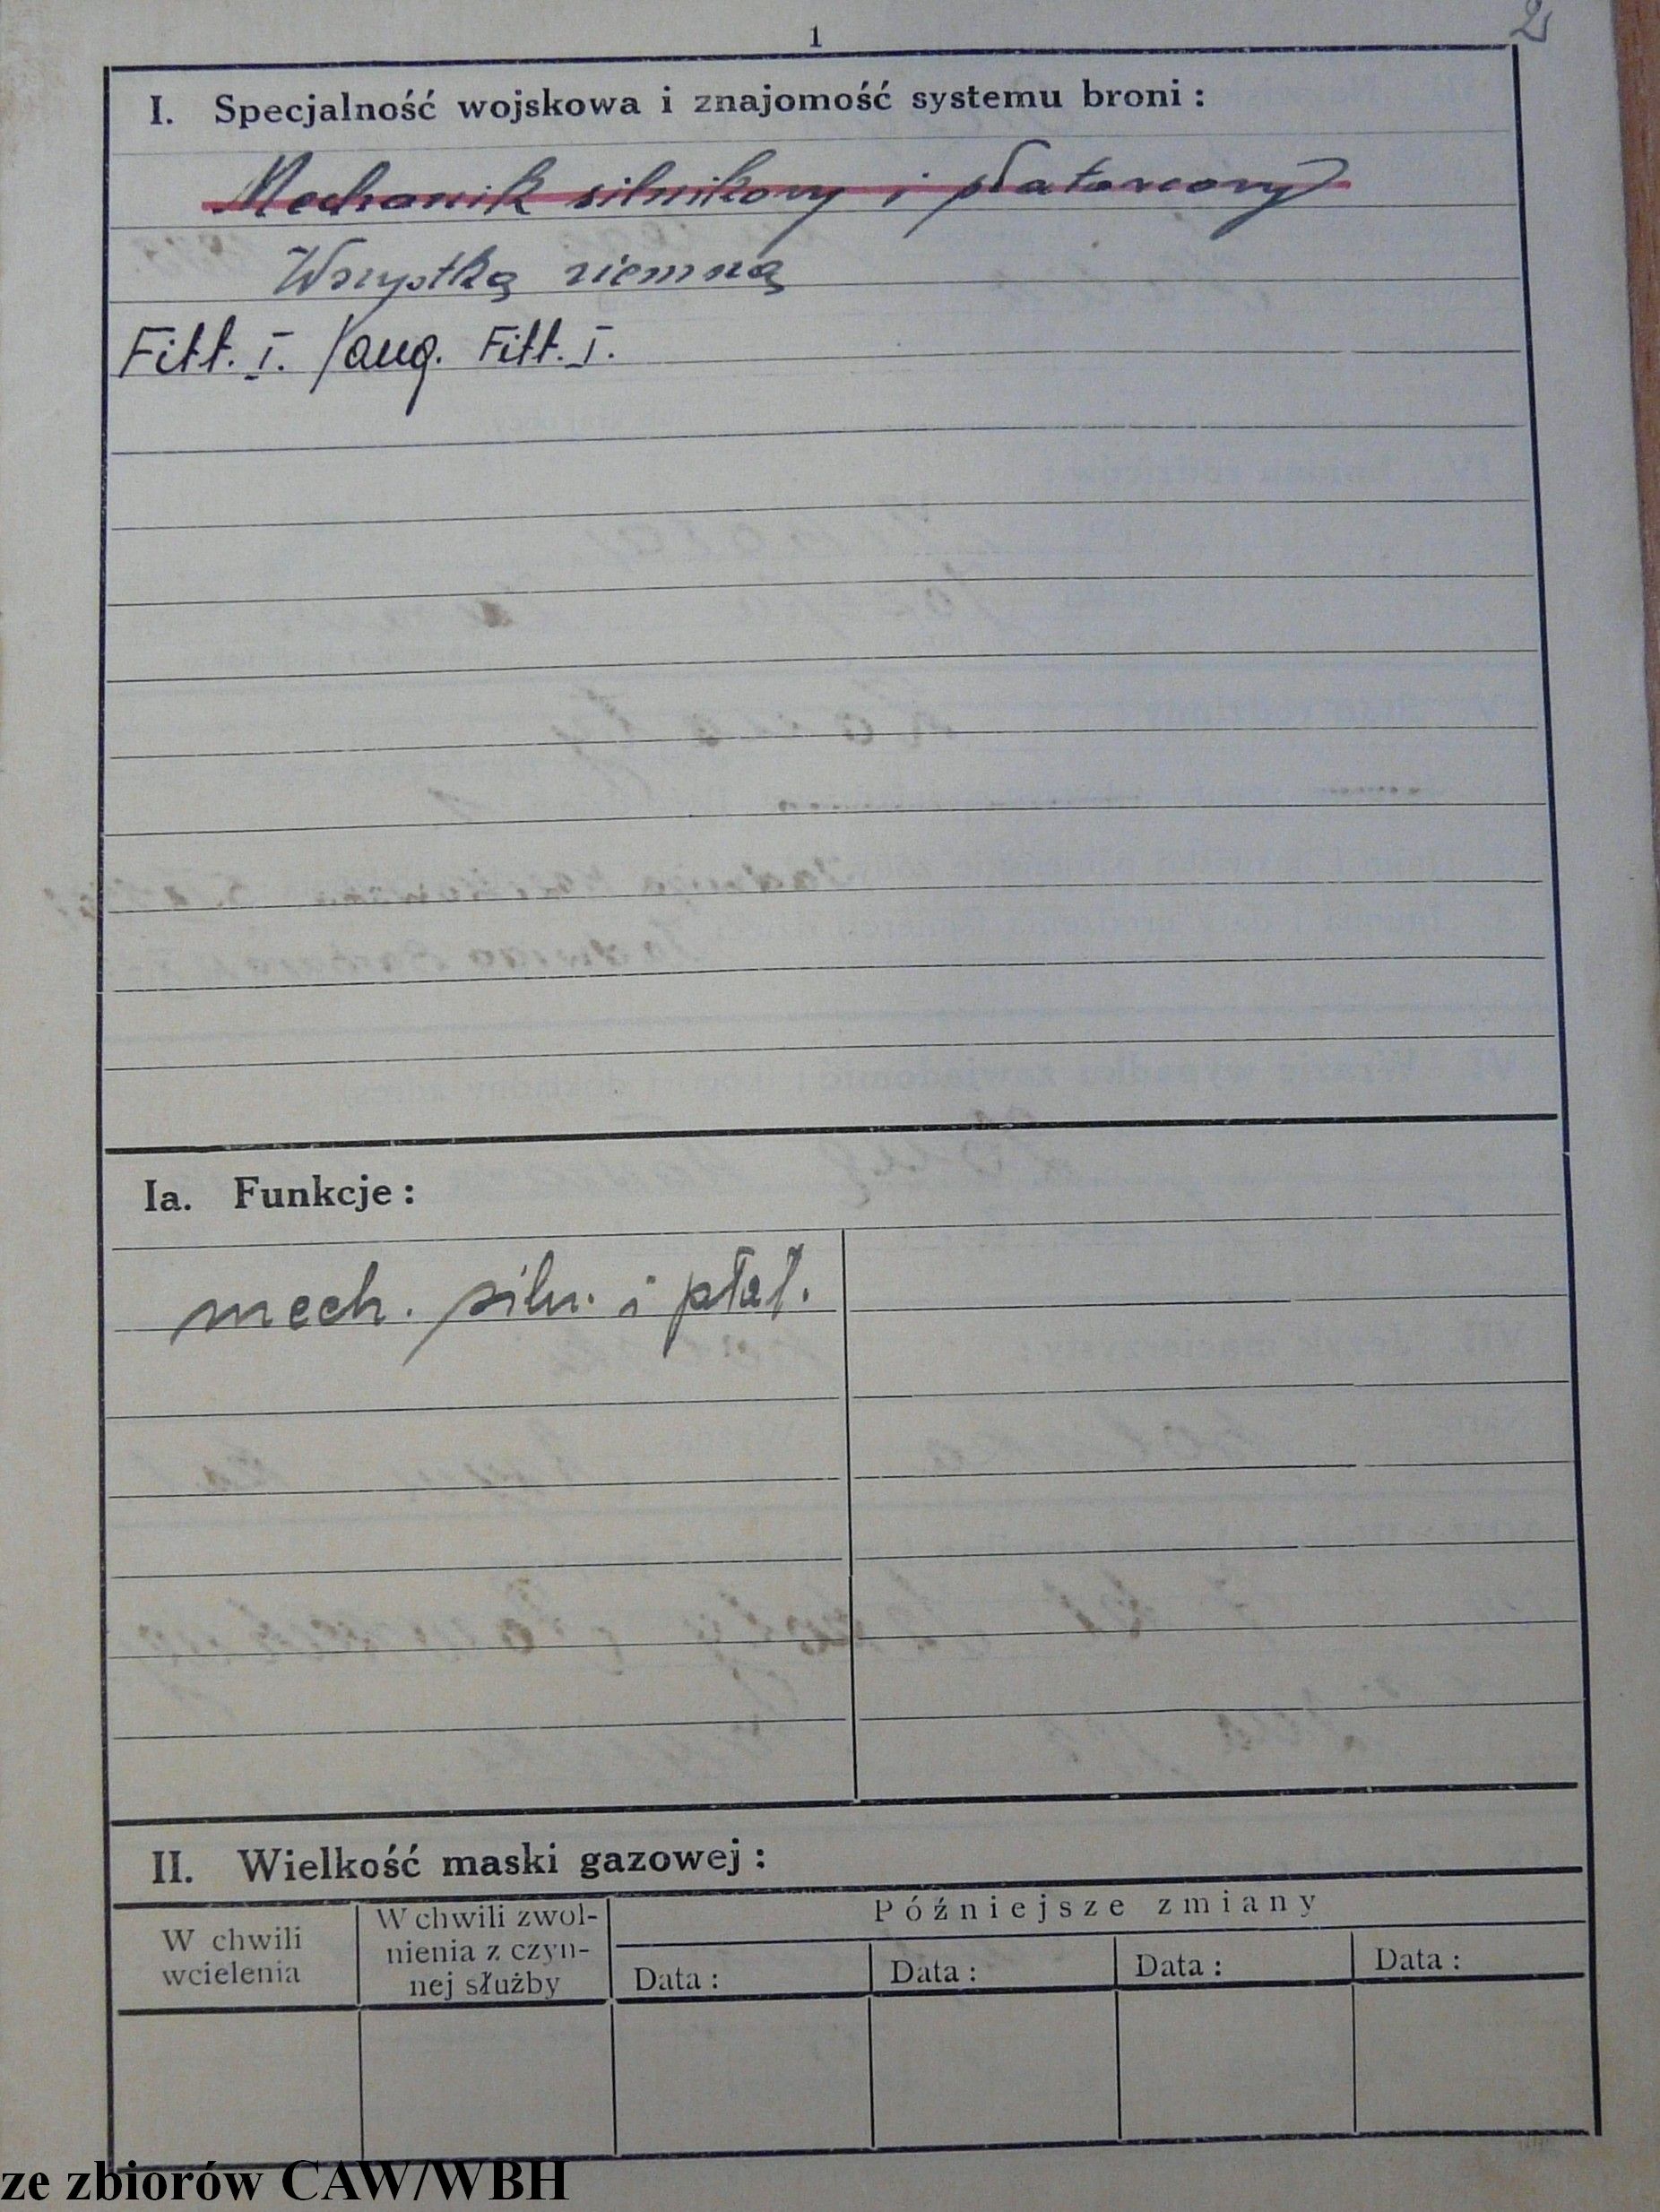 1
2
I. Specjalność wojskowa i znajomość systemu broni :
Mechanik silnikowy i płatowcowy
Wszystką ziemną
Fitt. I. /ang. Fitt. I.
Ia. Funkcje :
mech. siln. i płat.
II. Wielkość maski gazowej :
W chwili
wcielenia
W chwili zwol-
nienia z czyn-
nej służby
Późniejsze zmiany
Data :
Data :
Data :
Data :
ze zbiorów CAW/WBH